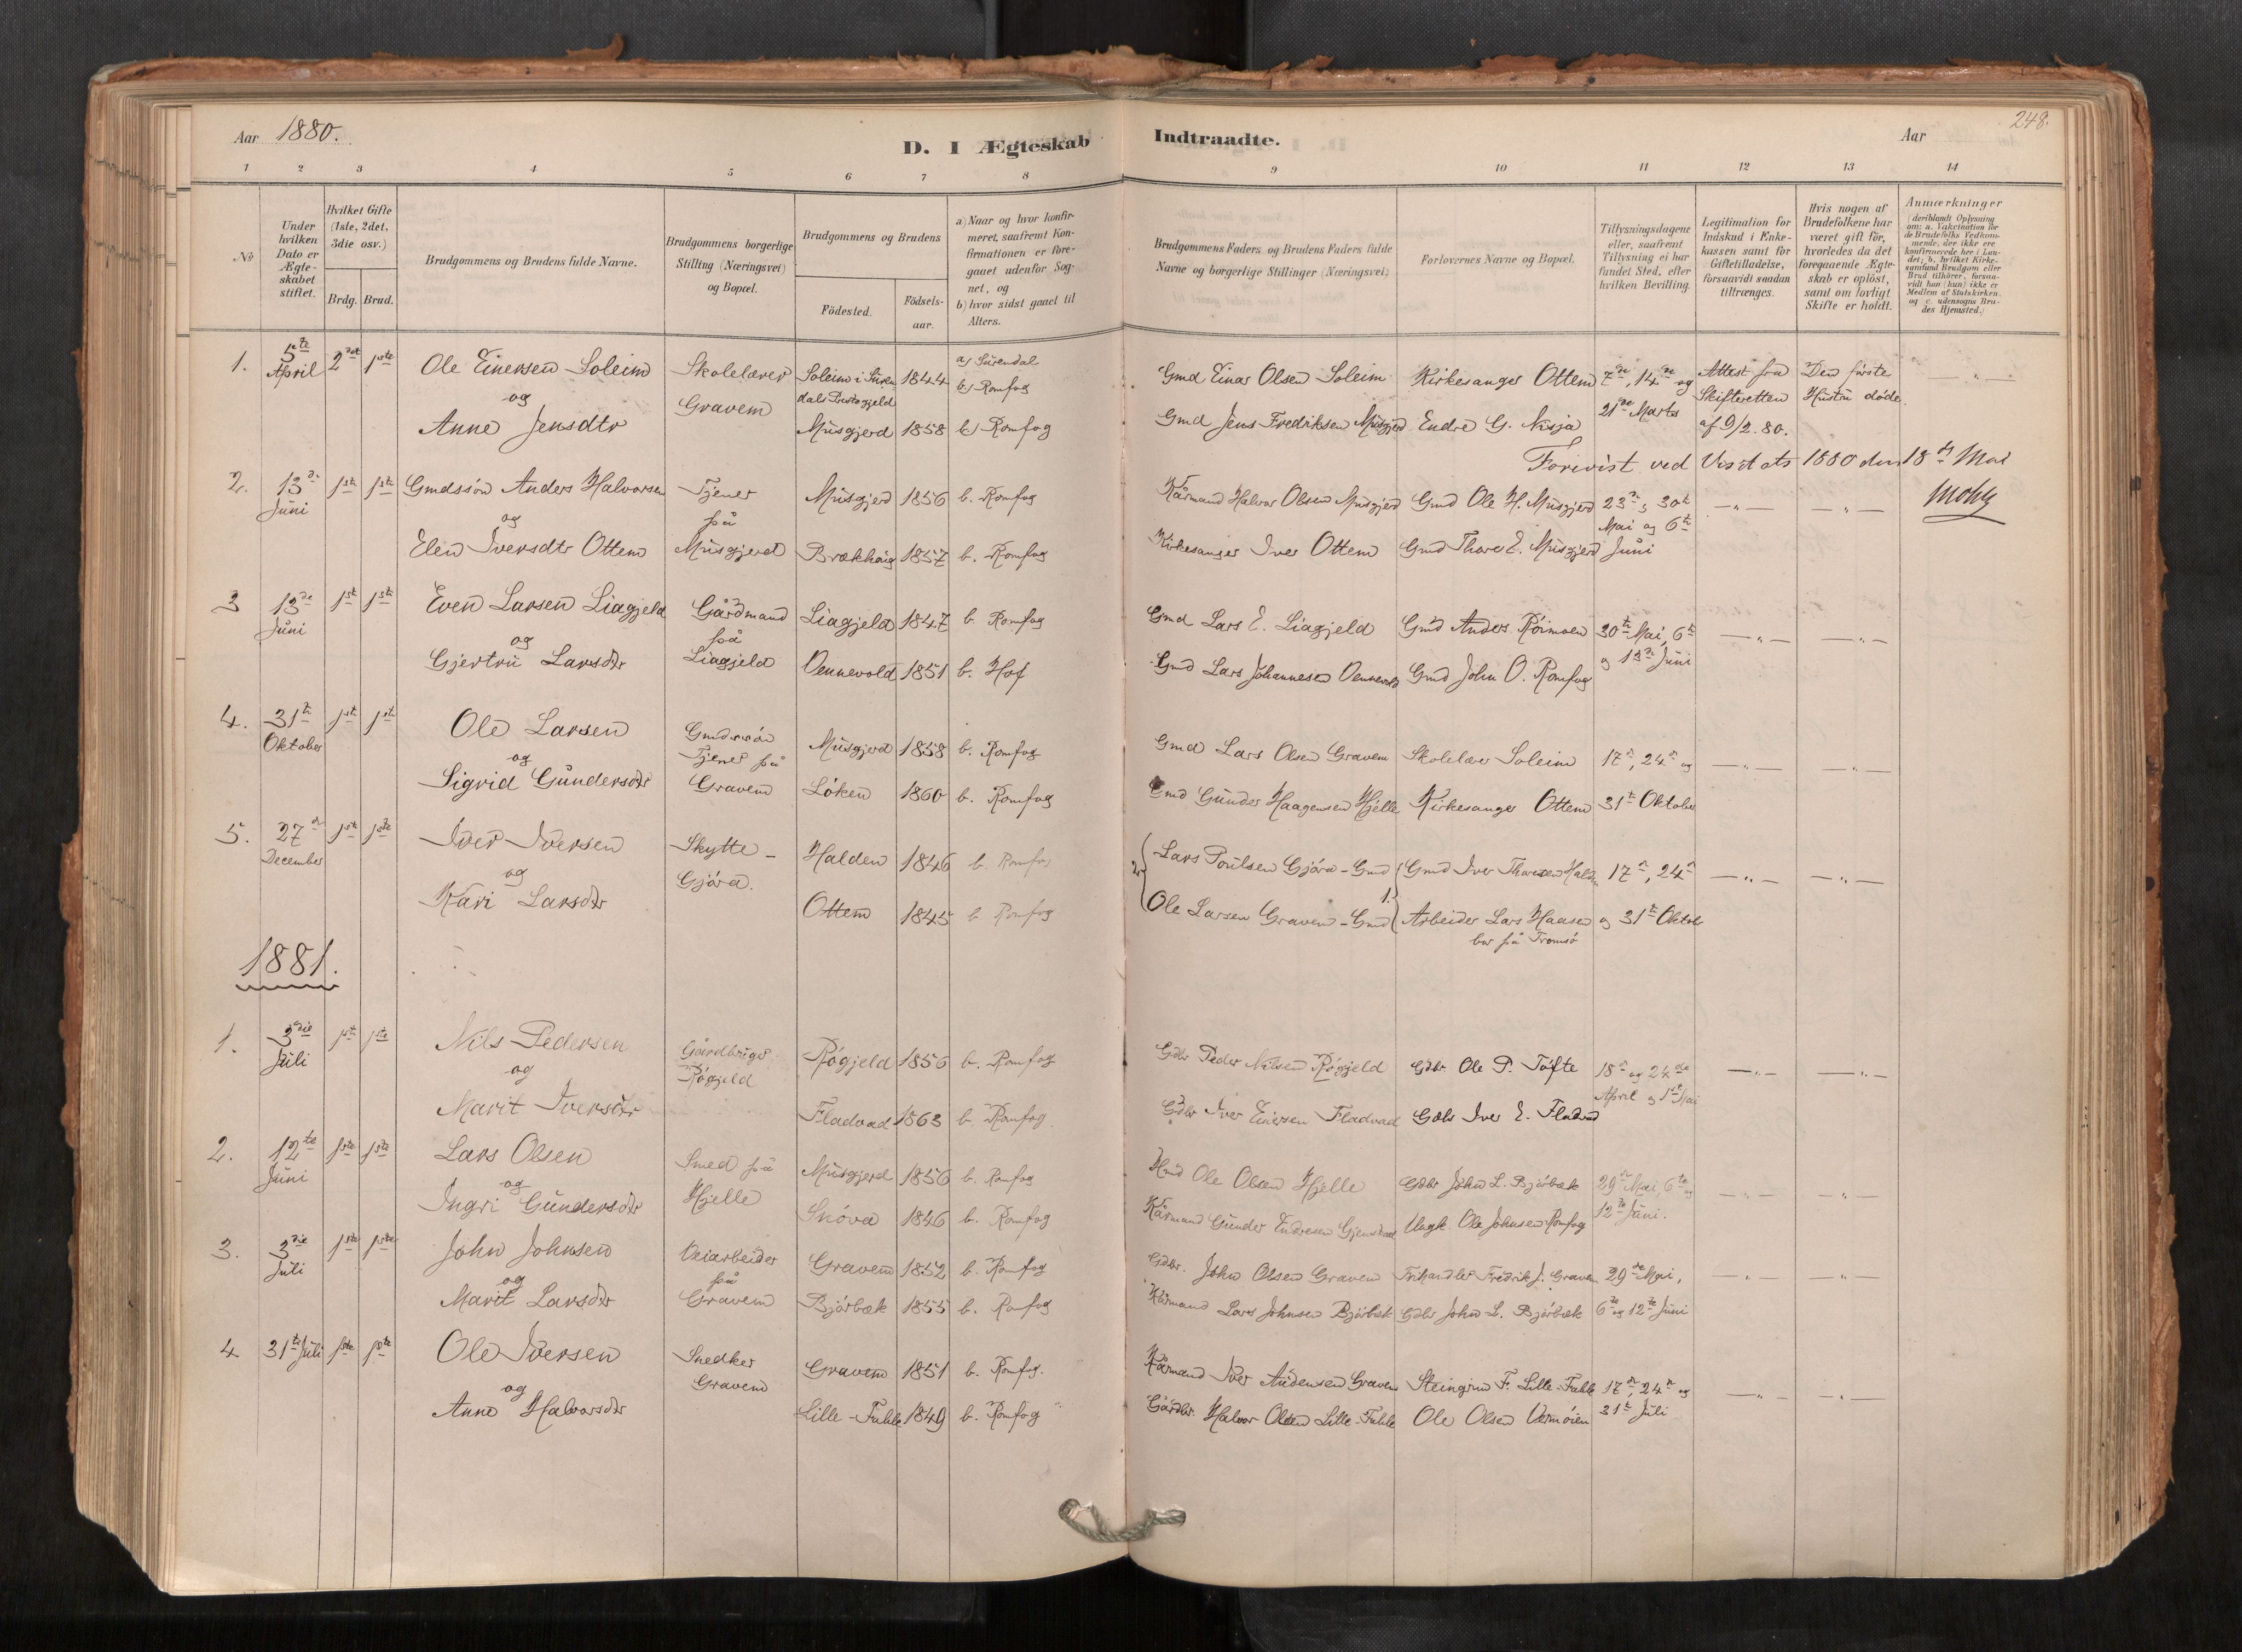 Aar 1880.
D. I Ægteskab Indtraadte.
Aar
248.
1 2 3 4 5 6 7 8 9 10 11 12 13 14
No
Under hvilken Dato er Ægteskabet stiftet.
Hvilket Gifte (1ste, 2det, 3die osv.)
Brdg. Brud.
Brudgommens og Brudens fulde Navne.
Brudgommens borgerlige Stilling (Næringsvei) og Bopæl.
Brudgommens og Brudens
Födested.
Födselsaar.
a) Naar og hvor konfirmeret, saafremt Konfirmationen er foregaaet udenfor Sognet, og
b) hvor sidst gaaet til Alters.
Brudgommens Faders og Brudens Faders fulde Navne og borgerlige Stillinger (Næringsvei)
Forlovernes Navne og Bopæl.
Tillysningsdagene eller, saafremt Tillysning ei har fundet Sted, efter hvilken Bevilling.
Legitimation for Indskud i Enkekassen samt for Giftetilladelse, forsaavidt saadan tiltrænges.
Hvis nogen af Brudefolkene har været gift för, hvorledes da det foregaaende Ægteskab er oplöst, samt om lovligt Skifte er holdt.
Anmærkninger (deriblandt Oplysning om: a. Vakcination for de Brudefolks Vedkommende, der ikke ere konfirmerede her i Landet; b. hvilket Kirkesamfund Brudgom eller Brud tilhörer, forsaavidt han (hun) ikke er Medlem af Statskirken, og c. udensogns Brudes Hjemsted.)
1. 5te April 2det 1ste Ole Einersen Soleim Skolelærer Soleim i Surendals Prestegjeld 1844 a) Surendal b) Romfog Gmd Einar Olsen Soleim Kirkesanger Ottem 7de, 14de og Attest fra Den første
og Gravem
Anne Jensdtr Musgjerd 1858 b) Romfog Gmd Jens Fredriksen Musgjerd Endre G. Nisja 21de Marts Skifteretten af 9/2.80. Hustru døde.
Forevist ved Visitats 1880 den 18de Mai
2. 13de Juni 1ste 1ste Gmdssön Anders Halvorsen Tjener Musgjerd 1856 b. Romfog Kårmand Halvor Olsen Musgjerd Gmd Ole H. Musgjerd 23de, 30te — " — — " —
og på
Elen Iversdtr Ottem Musgjerd Brækhaug 1857 b. Romfog Kirkesanger Iver Ottem Gmd Thore E. Musgjerd Mai og 6te Juni
3 13de Juni 1ste 1ste Even Larsen Liagjeld Gårdmand Liagjeld 1847 b. Romfog Gmd Lars E. Liagjeld Gmd Anders Röimoen 30te Mai, 6te — " — — " —
og på
Gjertru Larsdtr Liagjeld Vennevold 1851 b. Hof Gmd Lars Johannesen Vennevold Gmd John O. Romfog og 13de Juni
4. 31te Oktober 1ste 1ste Ole Larsen Gmdssön Musgjerd 1858 b. Romfog Gmd Lars Olsen Gravem Skolelærer Soleim 17de, 24de og — " — — " —
og Tjener på
Sigrid Gundersdtr Gravem Löken 1860 b. Romfog Gmd Gunder Haagensen Hjelle Kirkesanger Ottem 31te Oktober
5. 27de December 1ste 1ste Iver Iversen Skytte - Halden 1846 b. Romfog Lars Poulsen Gjöra - Gmd Gmd Iver Thoresen Halden 17de, 24de — " — — " —
og Gjöra.
Kari Larsdtr Ottem 1845 b. Romfog Ole Larsen Gravem - Gmd Arbeider Lars Haasen og 31te Oktob
bor på Tromsö
1881.
1. 3die Juli 1ste 1ste Nils Pedersen Gårdbruger Rögjeld 1856 b. Romfog Gdbr Peder Nilsen Rögjeld Gdbr. Ole P. Tofte 18de og 24de — " — — " —
og Rögjeld
Marit Iversdtr Fladvad 1863 b. Romfog. Gdbr Iver Einersen Fladvad Gdbr Iver E. Fladvad April og 1ste Mai
2. 12te Juni 1ste 1ste Lars Olsen Smed på Musgjerd 1856 b. Romfog Hmd Ole Olsen Hjelle Gdbr John L. Bjørbæk 29de Mai, 6te og — " — — " —
og Hjelle
Ingri Gundersdtr Snöva 1846 b. Romfog Kårmand Gunder Endresen Ungk. Ole Johnsen Romfog 12te Juni.
3. 3die Juli 1ste 1ste John Johnsen Veiarbeider Gravem 1852 b. Romfog Gdbr. John Olsen Gravem Fredrik J. Gravem 29de Mai, — " — — " —
og på
Marit Larsdtr Gravem Bjørbæk 1855 b. Romfog Kårmand Lars Johnsen Bjørbæk Gdbr John L. Bjørbæk 6te og 12te Juni
4 31te Juli 1ste 1ste Ole Iversen Snedker Gravem 1851 b. Romfog. Kårmand Iver Audensen Gravem Steingrim F. Lille-Fahle 17de, 24de og — " — — " —
og Gravem
Anne Halvorsdtr Lille-Fahle 1849 b. Romfog Gårdbr. Halvor Olsen Lille-Fahle Ole Olsen Vermöien 31te Juli